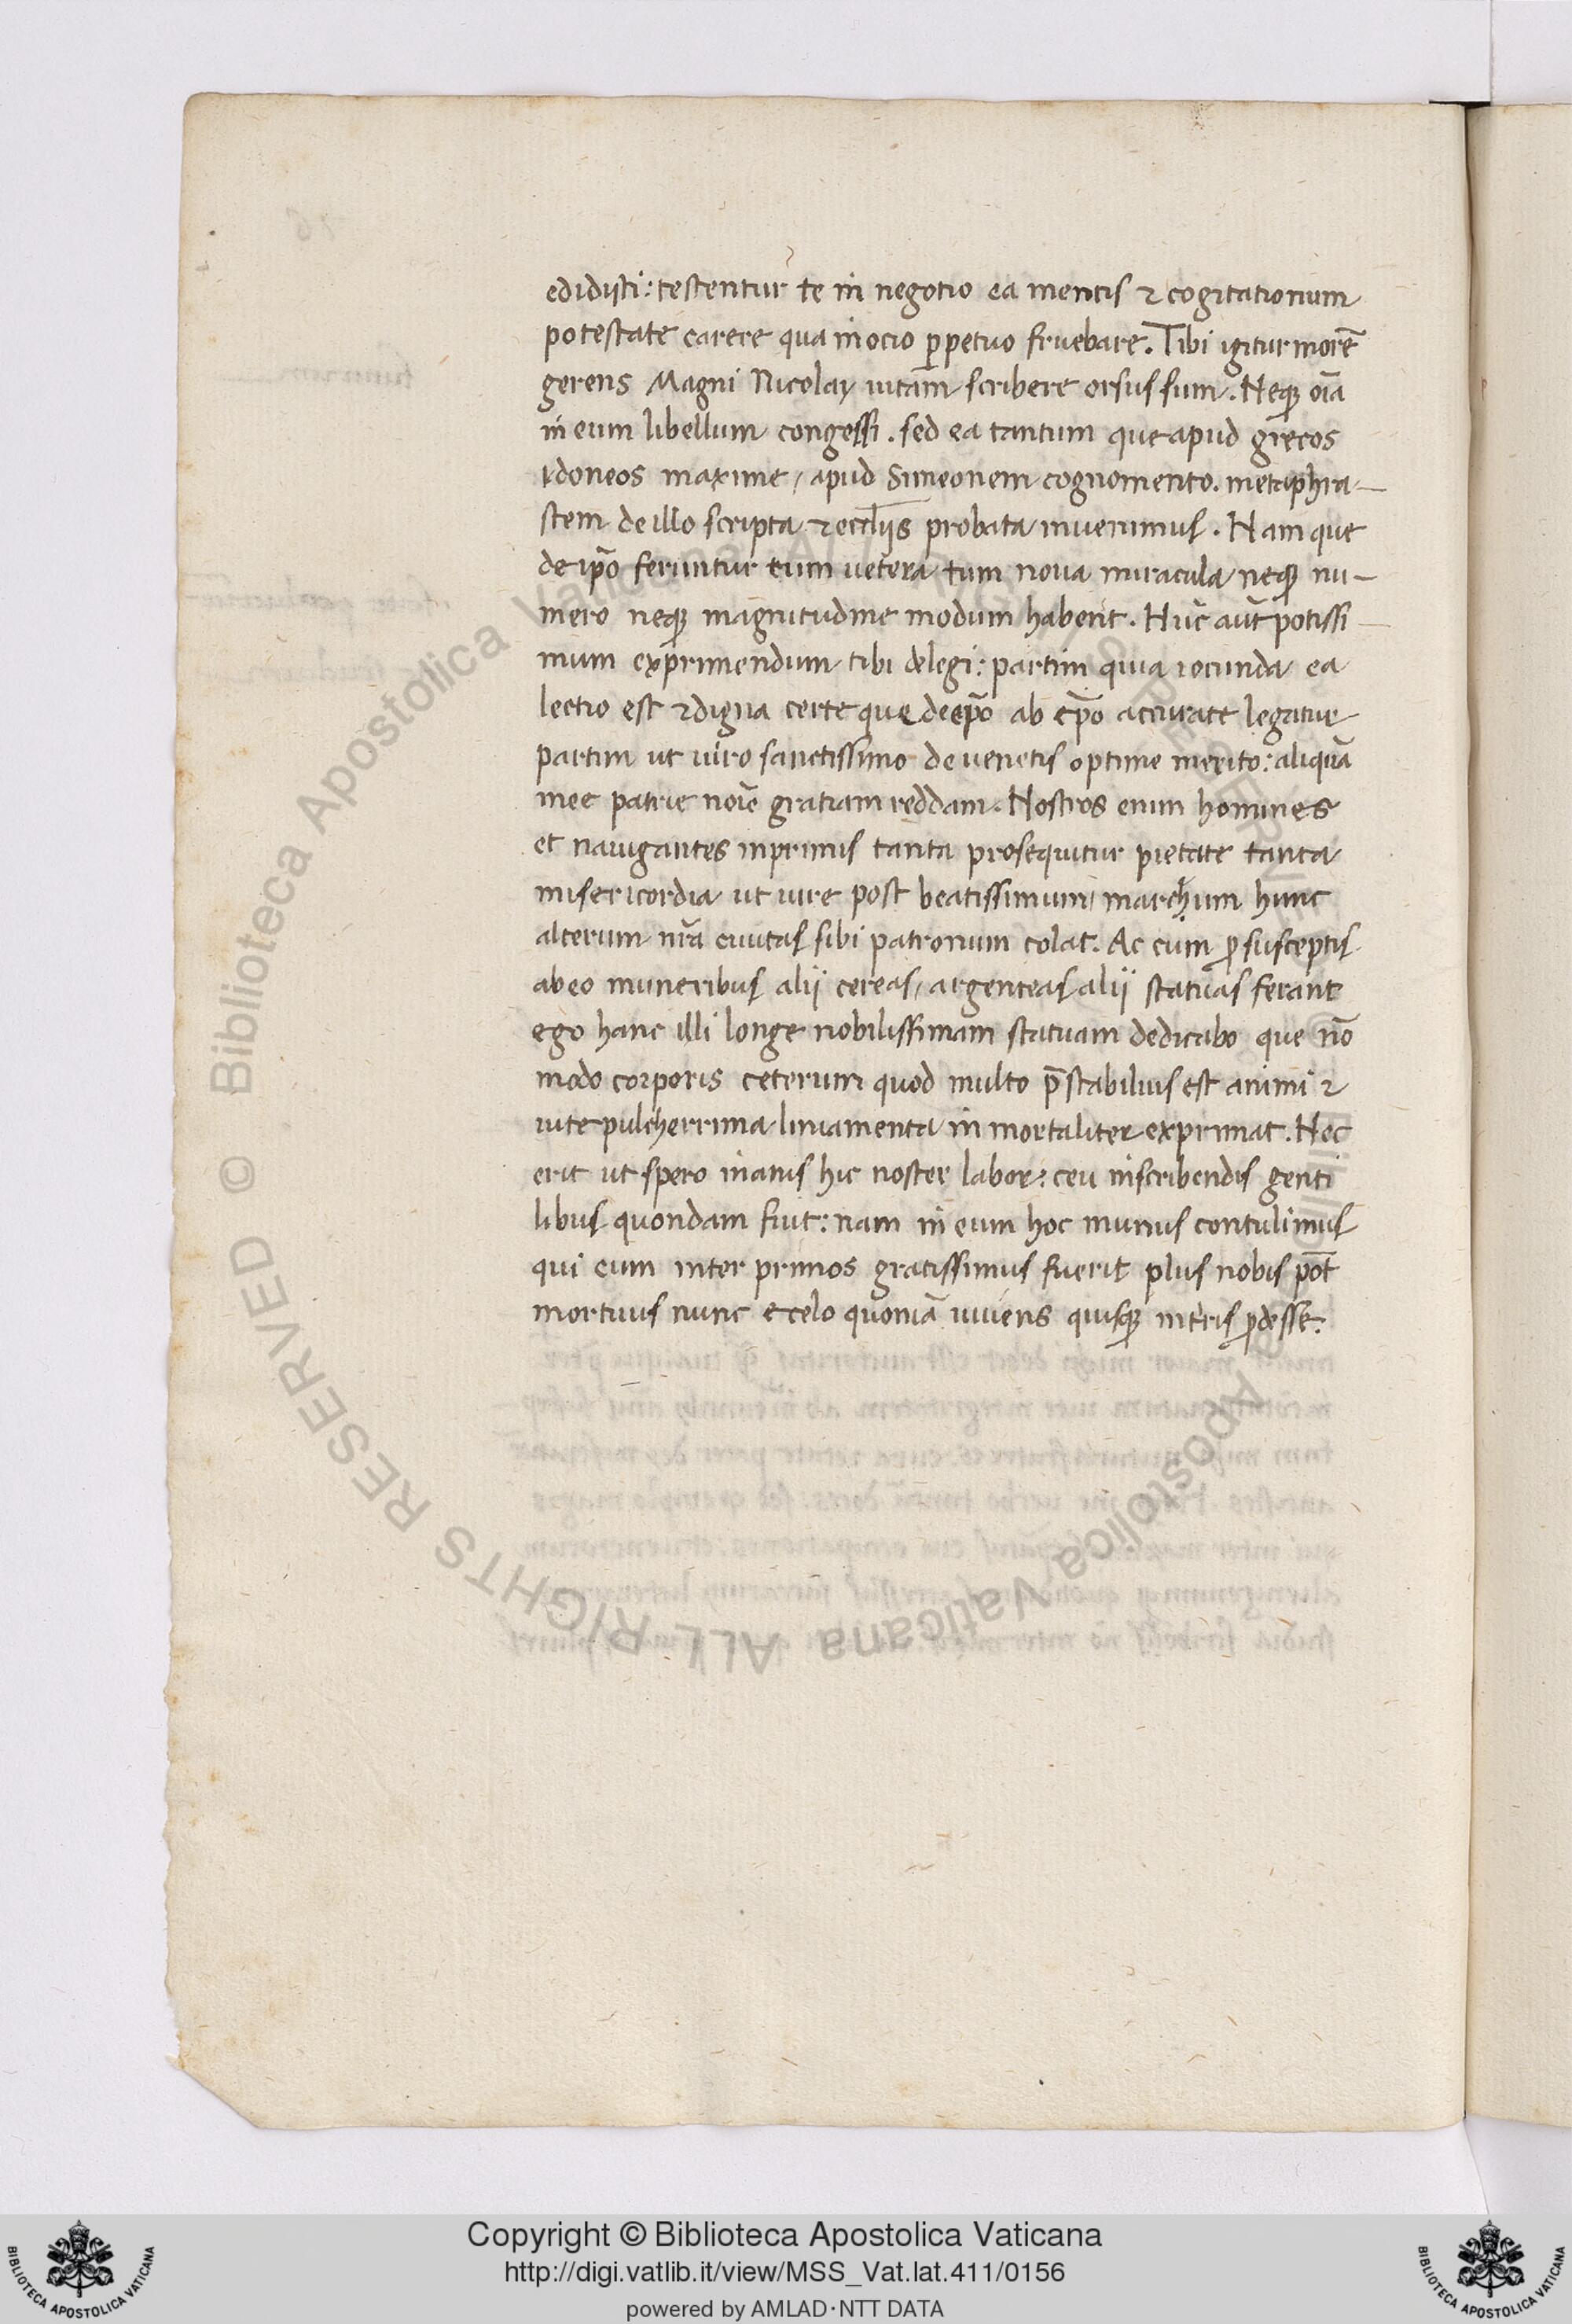 edidisti: testentur te in negotio ea mentis ⁊ cogitationum
potestate carere qua in ocio ꝑpetuo fruebare. Tibi igitur morē
gerens Magni Nicolay uitam scribere orsus sum. Neqꝫ oīa
in eum libellum congessi. sed ea tantum que apud grecos
ydoneos maxime, apud Simeonem cognomento. metaphra-
stem de illo scripta ⁊ eccl̄iis probata inuenimus. Nam que
de ip̄o feruntur tum uetera tum noua miracula neqꝫ nu-
mero neqꝫ magnitudine modum habent. Hūc aūt potissi-
mum exprimendum tibi delegi: partim quia iocunda ea
lectio est ⁊ digna certe que de ep̄o ab ep̄o accurate legatur
partim ut uiro sanctissimo de uenetis optime merito: aliquā
mee patrie noīe gratiam reddam. Nostros enim homines
et nauigantes inprimis tanta prosequitur pietate tanta
misericordia ut iure post beatissimum marchum hunc
alterum nr̄a ciuitas sibi patronum colat. Ac cum ꝓ susceptis
ab eo muneribus alij cereas, argenteas alij statuas ferant
ego hanc illi longe nobilissimam statuam dedicabo que nō
modo corporis ceterum quod multo p̄stabilius est animi ⁊
uite pulcherrima liniamenta in mortaliter exprimat. Nec
erit ut spero inanis hic noster labor: ceu in scribendis genti
libus quondam fuit: nam in eum hoc munus contulimus
qui cum inter primos gratissimus fuerit plus nobis pōt
mortuus nunc e celo quoniā uiuens quisqꝫ in tr̄is ꝓdesse.
Copyright © Biblioteca Apostolica Vaticana
http://digi.vatlib.it/view/MSS_Vat.lat.411/0156
powered by AMLAD·NTT DATA
Biblioteca Apostolica Vaticana ALL RIGHTS RESERVED ©
BIBLIOTECA APOSTOLICA VATICANA
BIBLIOTECA APOSTOLICA VATICANA